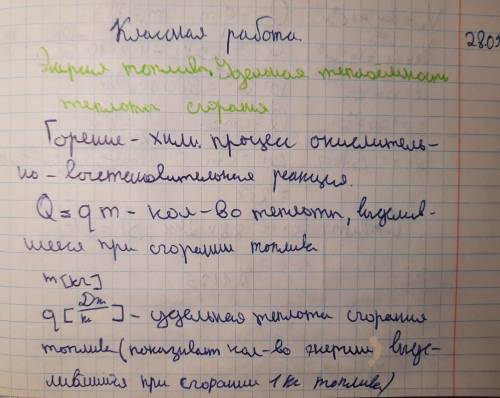 Классная работа 28.09
Энергия топлива. Удельная теплоёмность
теплоты сгорания
Горение - хим. процесс окислитель-
но - восстановительная реакция.
Q = q m - кол-во теплоты, выделив-
шееся при сгорании топлива
m [кг]
q [Дж/кг] - удельная теплота сгорания
топлива (показывает кол-во энергии, выде-
лившийся при сгорании 1 кг топлива)